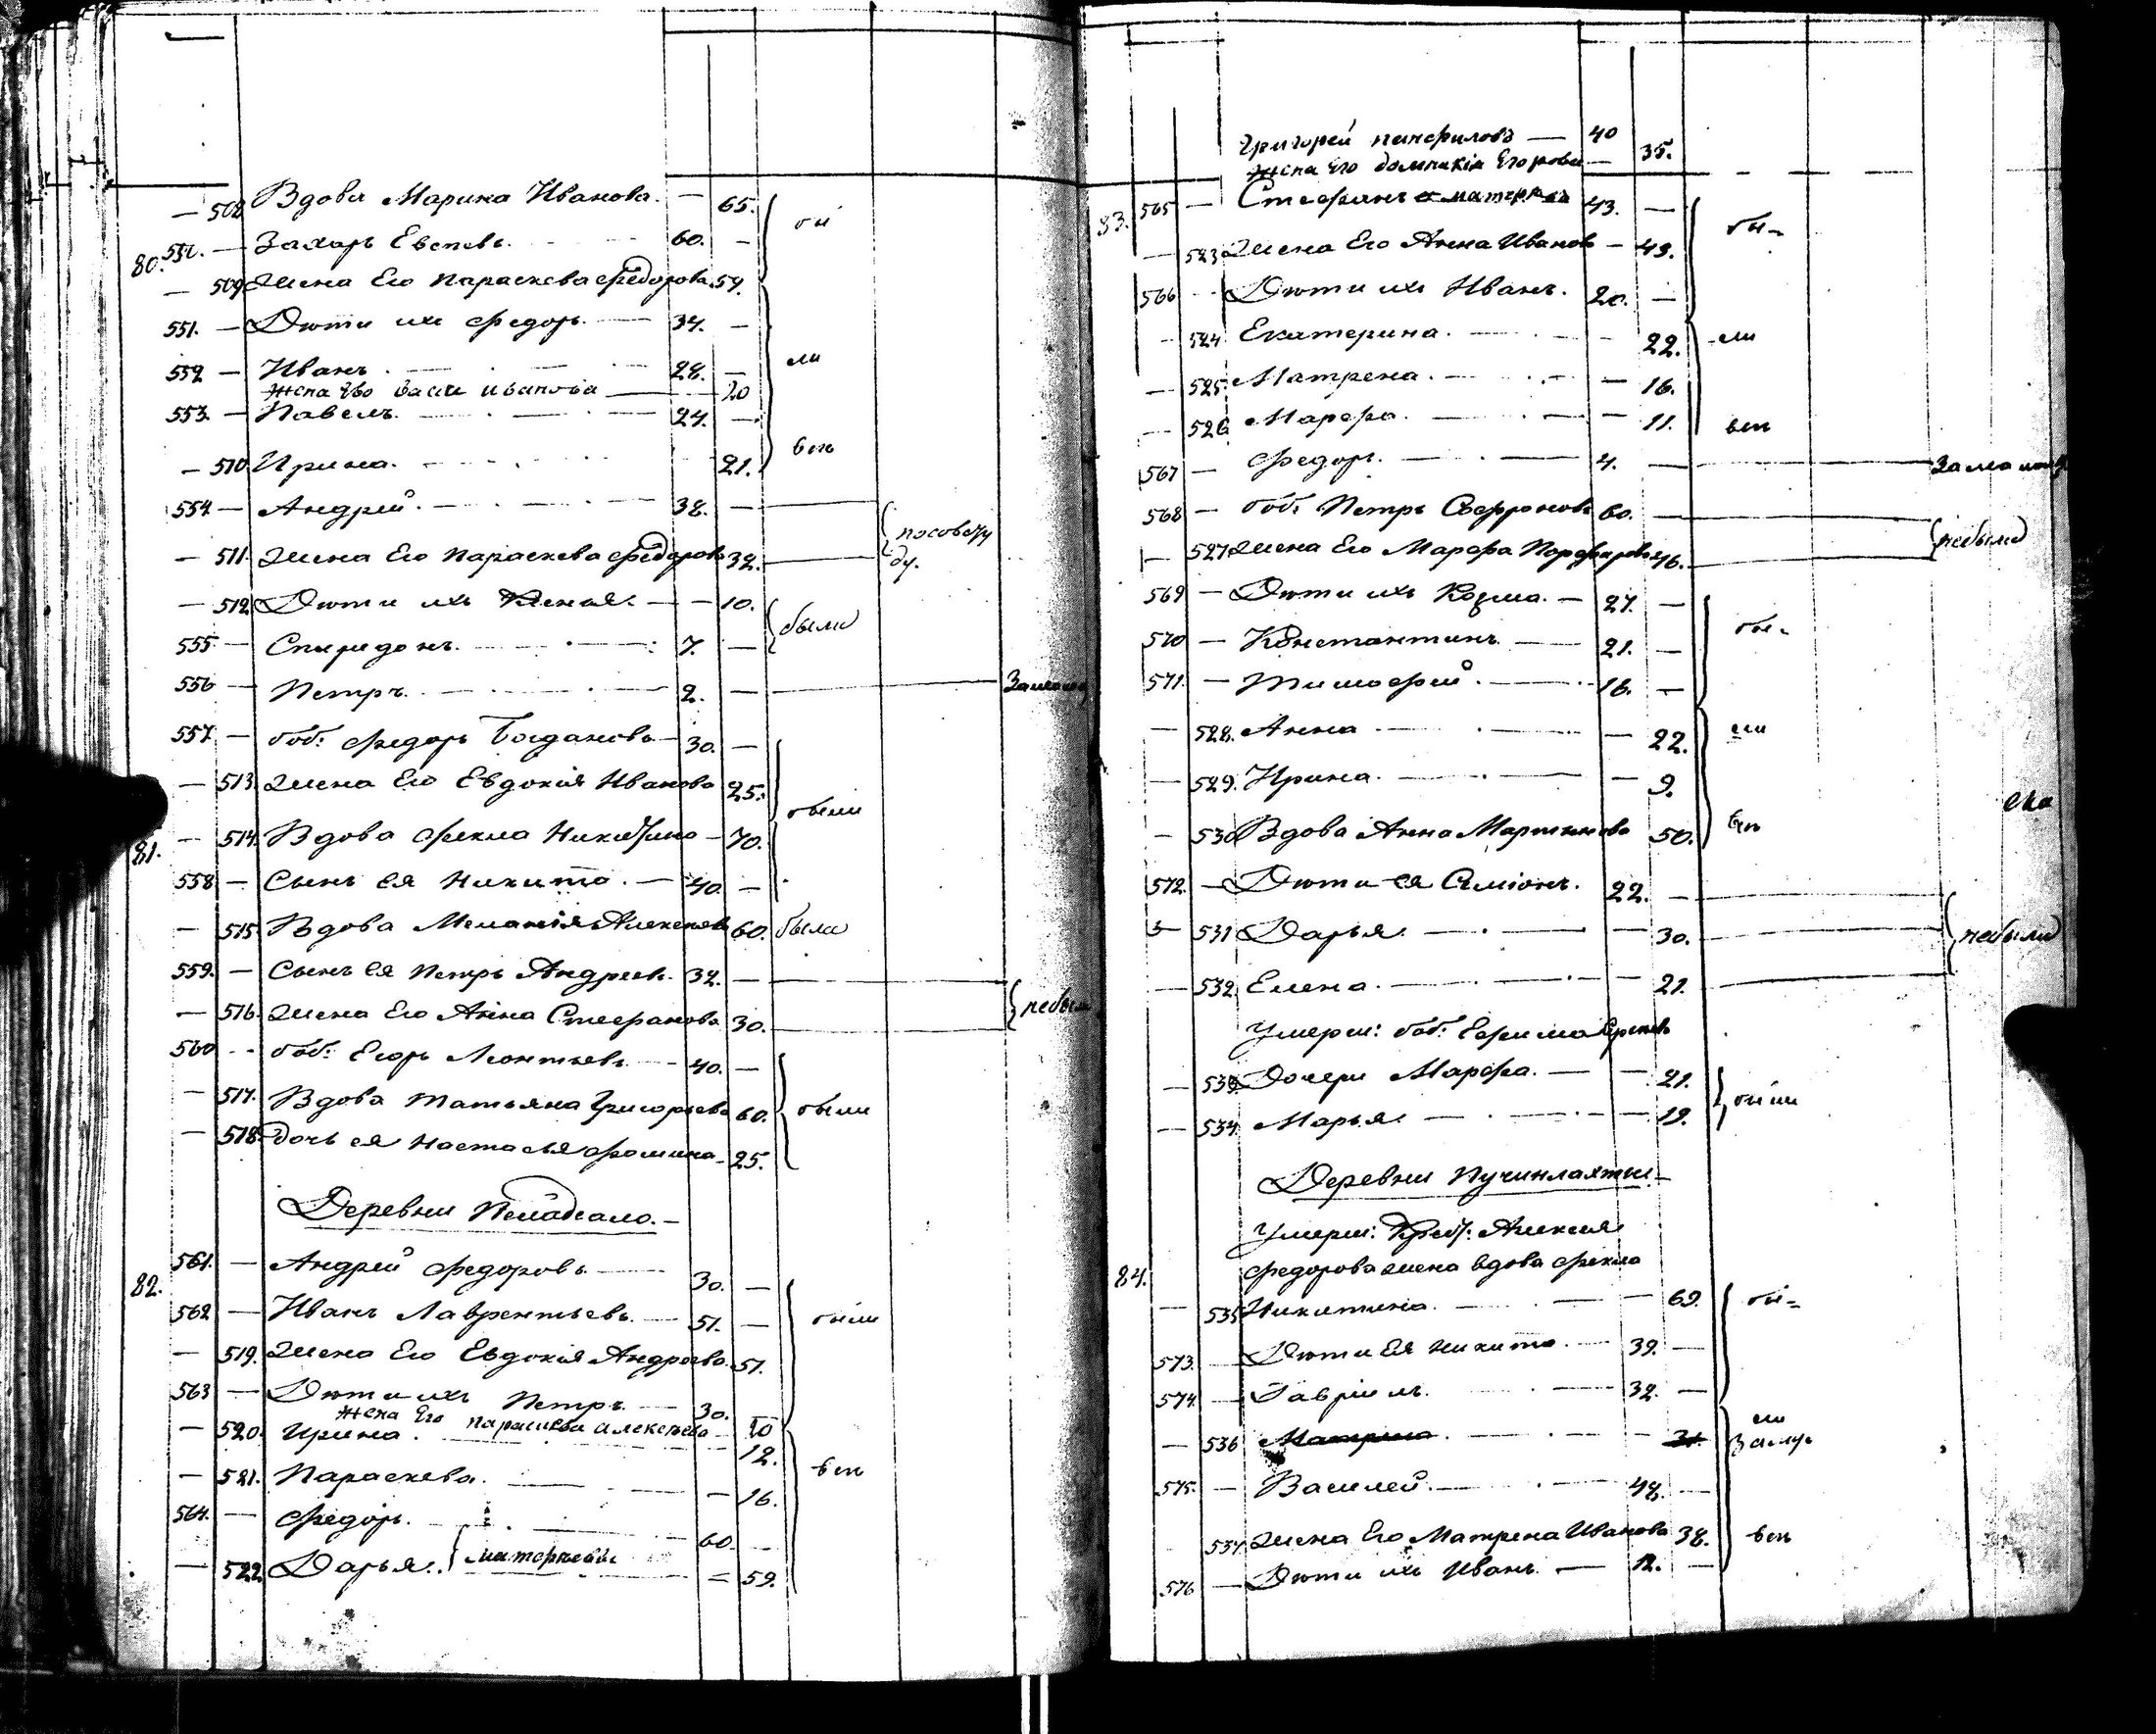 — 508 Вдова Марина Иванова. — 65.
80. 550. — Захаръ Евсѣевъ. 60. — бы
— 509 Жена Его Параскева Федорова 54.
551. — Дѣти ихъ Федоръ. — 34. —
552 — Иванъ. 28. — ли
Жена Его Иванова — 20
553. — Павелъ. 24. —
— 510 Ирина. 21. всѣ
554 — Андрей. 38. —
— 511. Жена Его Параскева Федорова 32.
— 512 Дѣти ихъ — 10.
555 — Спиридонъ. 7. — были
556 — Петръ. 2. —
557. — боб: Федоръ Богдановъ — 30. —
— 513. Жена Его Евдокія Иванова 25. были
81. — 514. Вдова Фекла Никитина — 70.
558 — Сынъ ея Никита. — 40. —
— 515. Вдова Меланія Алексеева 60. были
559. — Сынъ ея Петръ Андреевъ. 32. —
— 516. Жена Его Анна Стефанова 30. небыли
560 боб: Егоръ Леонтьевъ. — 40. —
— 517. Вдова Татьяна Григорьева 60. были
— 518. Дочь ея Настасья Фомина — 25.
Деревни
82. 561. — Андрей Федоровъ — 30. —
562 — Иванъ Лаврентьевъ. — 51. — были
— 519. Жена Его Евдокія Андреева 51.
563 — Дѣти ихъ Петръ. — 30.
Жена Его Параскева Алексеева
— 520. Ирина. — 12.
— 521. Параскева. — 16. всѣ
564. — Федоръ. 60.
— 522 Дарья. 59.
Григорей Панфиловъ — 40
Жена Его Домникія Егорова — 35.
83. 565 — Стефанъ 43. —
— 523 Жена Его Анна Иванова — 43. бы-
566 Дѣти ихъ Иванъ. 20. —
524 Екатерина. 22. -ли
— 525 Матрена. — 16.
— 526 Марфа. — 11. всѣ
567 — Федоръ. 4. —
568 — боб: Петръ Сафроновъ 60. — небыли
— 527 Жена Его Марфа 46.
569 — Дѣти ихъ Козма. — 27. —
570 — Константинъ — 21. — бы-
571. — Тимофей. — 16. —
— 528. Анна — 22. ли
— 529. Ирина. — 9.
— 530 Вдова Анна Мартинова 50. всѣ
572. — Дѣти ея Симіонъ. 22. —
531 Дарья. — 30. небыли
— 532. Елена. — 21.
Умерш: боб: Ефима
— 533 Дочери Марфа. — 21. были
— 534. Марья. — 19.
Деревни
84. Умерш: Алексея
Федорова жена вдова Фекла
— 535 Никитина. — 69. бы-
573. Дѣти Ея Никита. 39. —
574 Гавріилъ. 32. —
— 536 Матрена. — 31. ли
575. — Василей. 48. —
537. Жена Его Матрена Иванова 38. всѣ
576 — Дѣти ихъ Иванъ. — 12. —